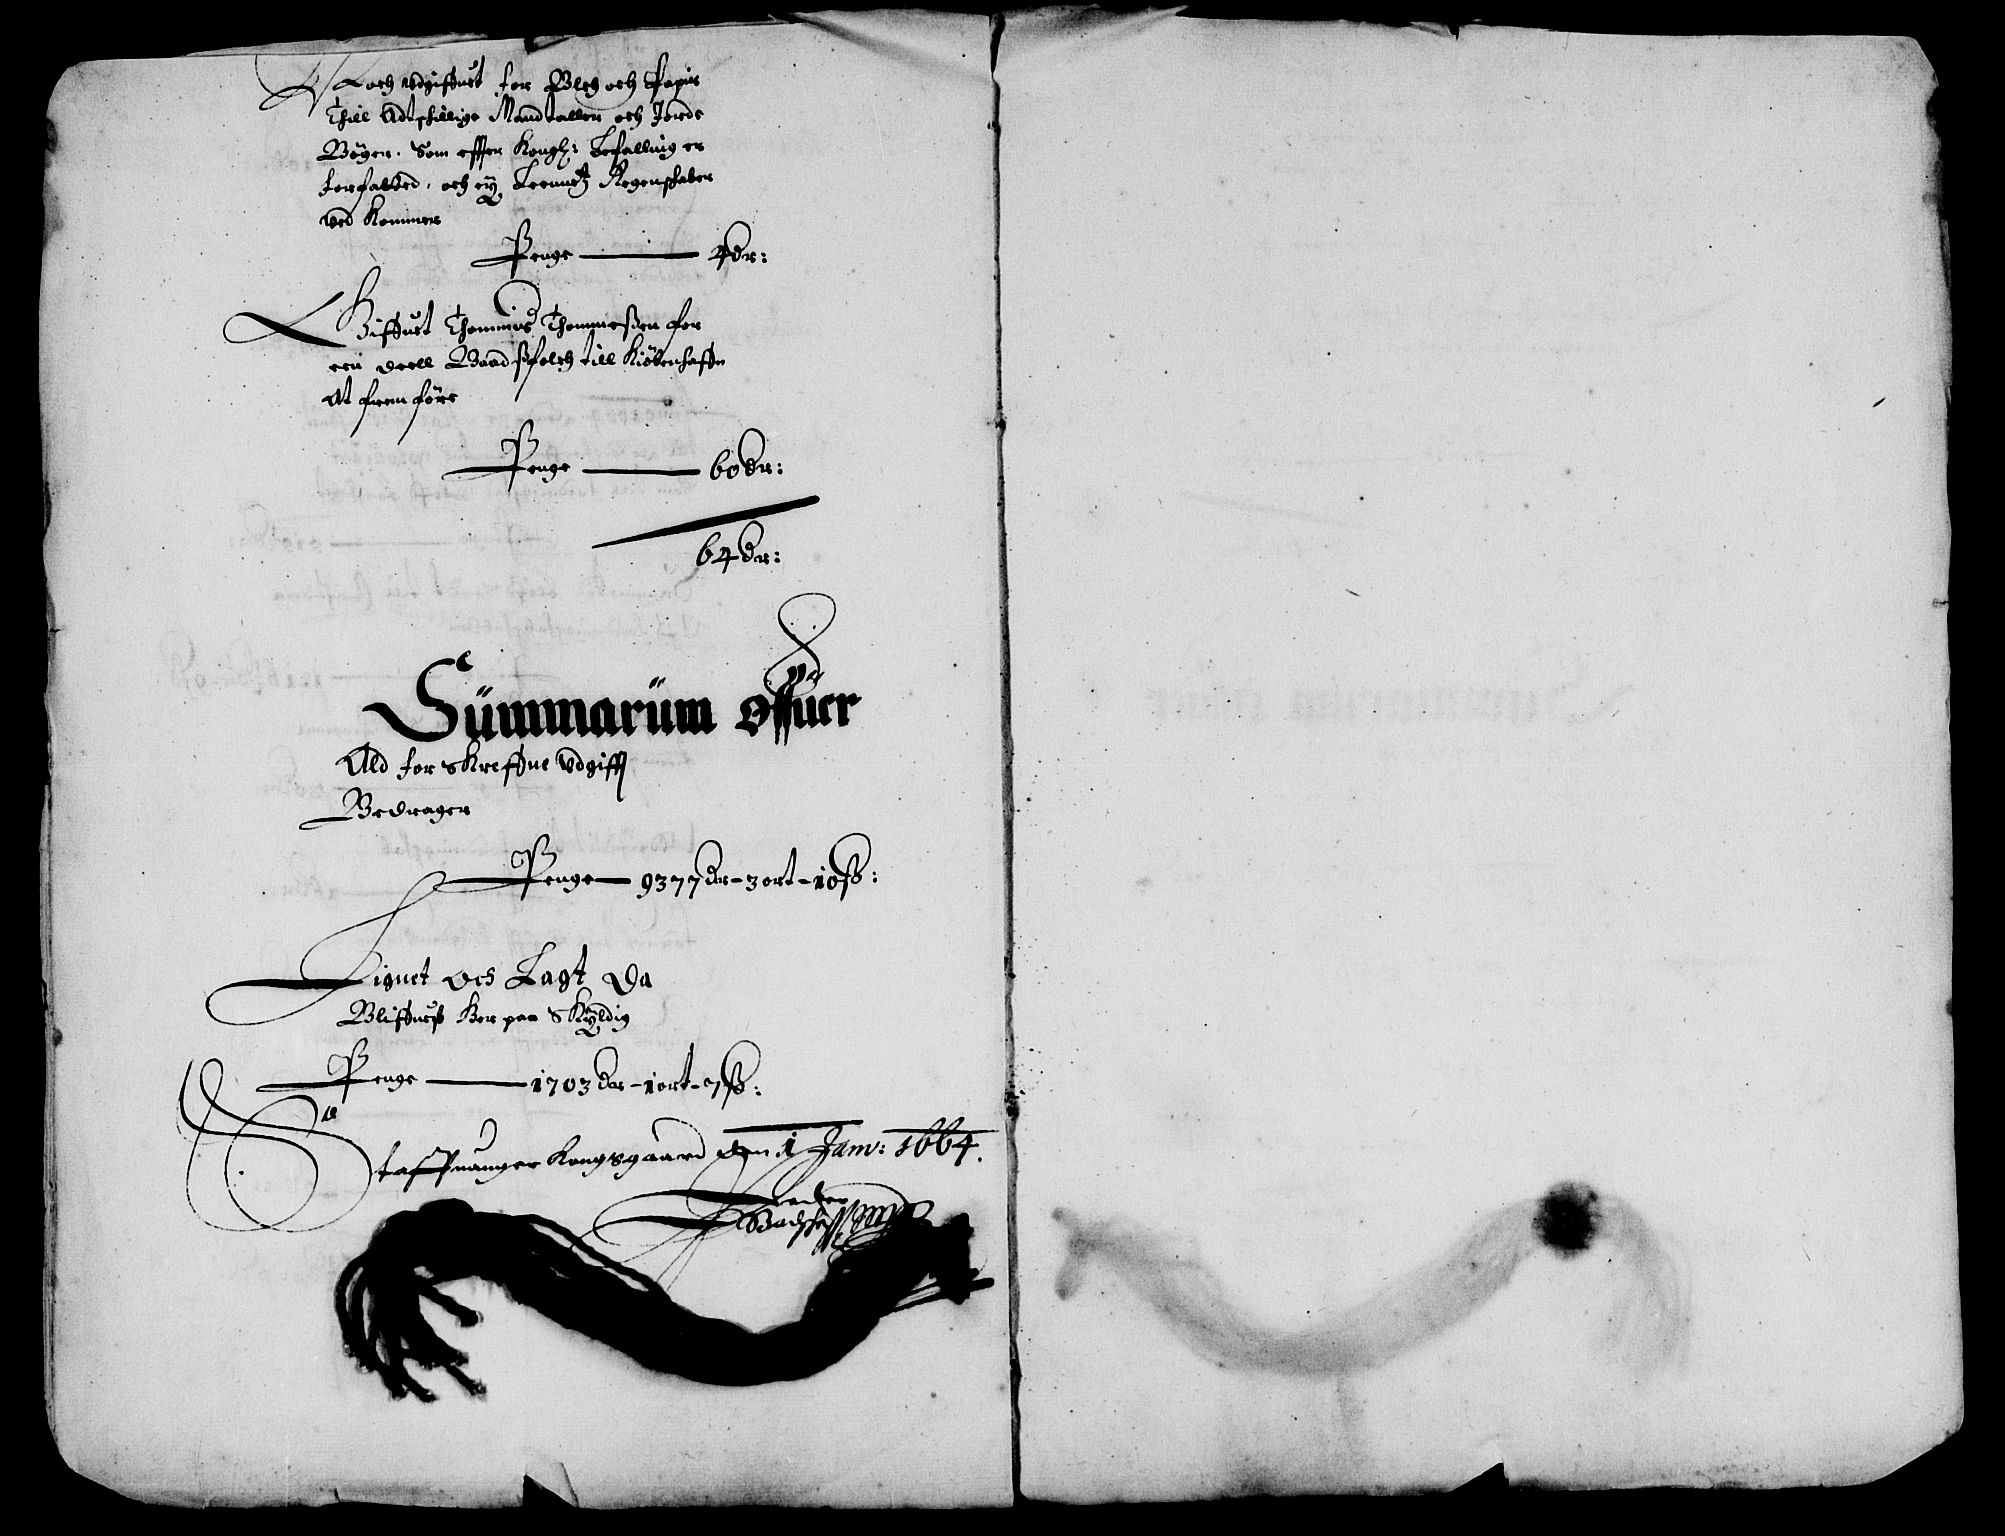 Noch udgiffuet for Blech och Papir
Till Adtschillige Mandtaller och Jorde
Bøger. Som effter Kongl: Befalling er
forfatted. och ey Leennetz Regenschaber
ved Kommer
Penge ——— 4 dr:
Giffuet Thommis Thommeßen for
een deell Baadßfolch till Kiøbenhaffn
At frem føre
Penge ——— 60 dr:
64 dr:
Summarum offuer
Ald for skreffne Udgifft
Bedrager
Penge — 9377 dr - 3 ort - 10 ß:
Lignet och Lagt Da
Bliffuer Ker paa Skyldig
Penge ——— 1703 dr - 1 ort - 7 ß:
Staffuanger Kongsgaard den 1 Janv: 1664.